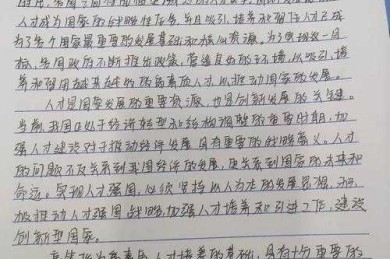 人才成为国家的战略性存在,并且吸引、培养和留住人才已成
为了各个国家最重要的发展基础和核心资源。为了实现这一目
标,各国政府不断推出政策,营造良好的环境,以吸引、培
养和留用越来越多的高素质人才,以推动国家的发展。
人才是国家发展的重要资源,也是创新发展的关键。
当前,我国正处于经济转型和结构调整的重要时期,加
强人才建设对于推动经济发展具有重要的战略意义。人才
的问题不仅关系到我国经济的发展,更关系到国家的未来和
命运。实现人才强国,必须坚持以人为本的发展思想,积
极推动人才强国战略,加强人才培养和引进工作,建设
创新型国家。
高素质人才培养的基础,具有十分重要的